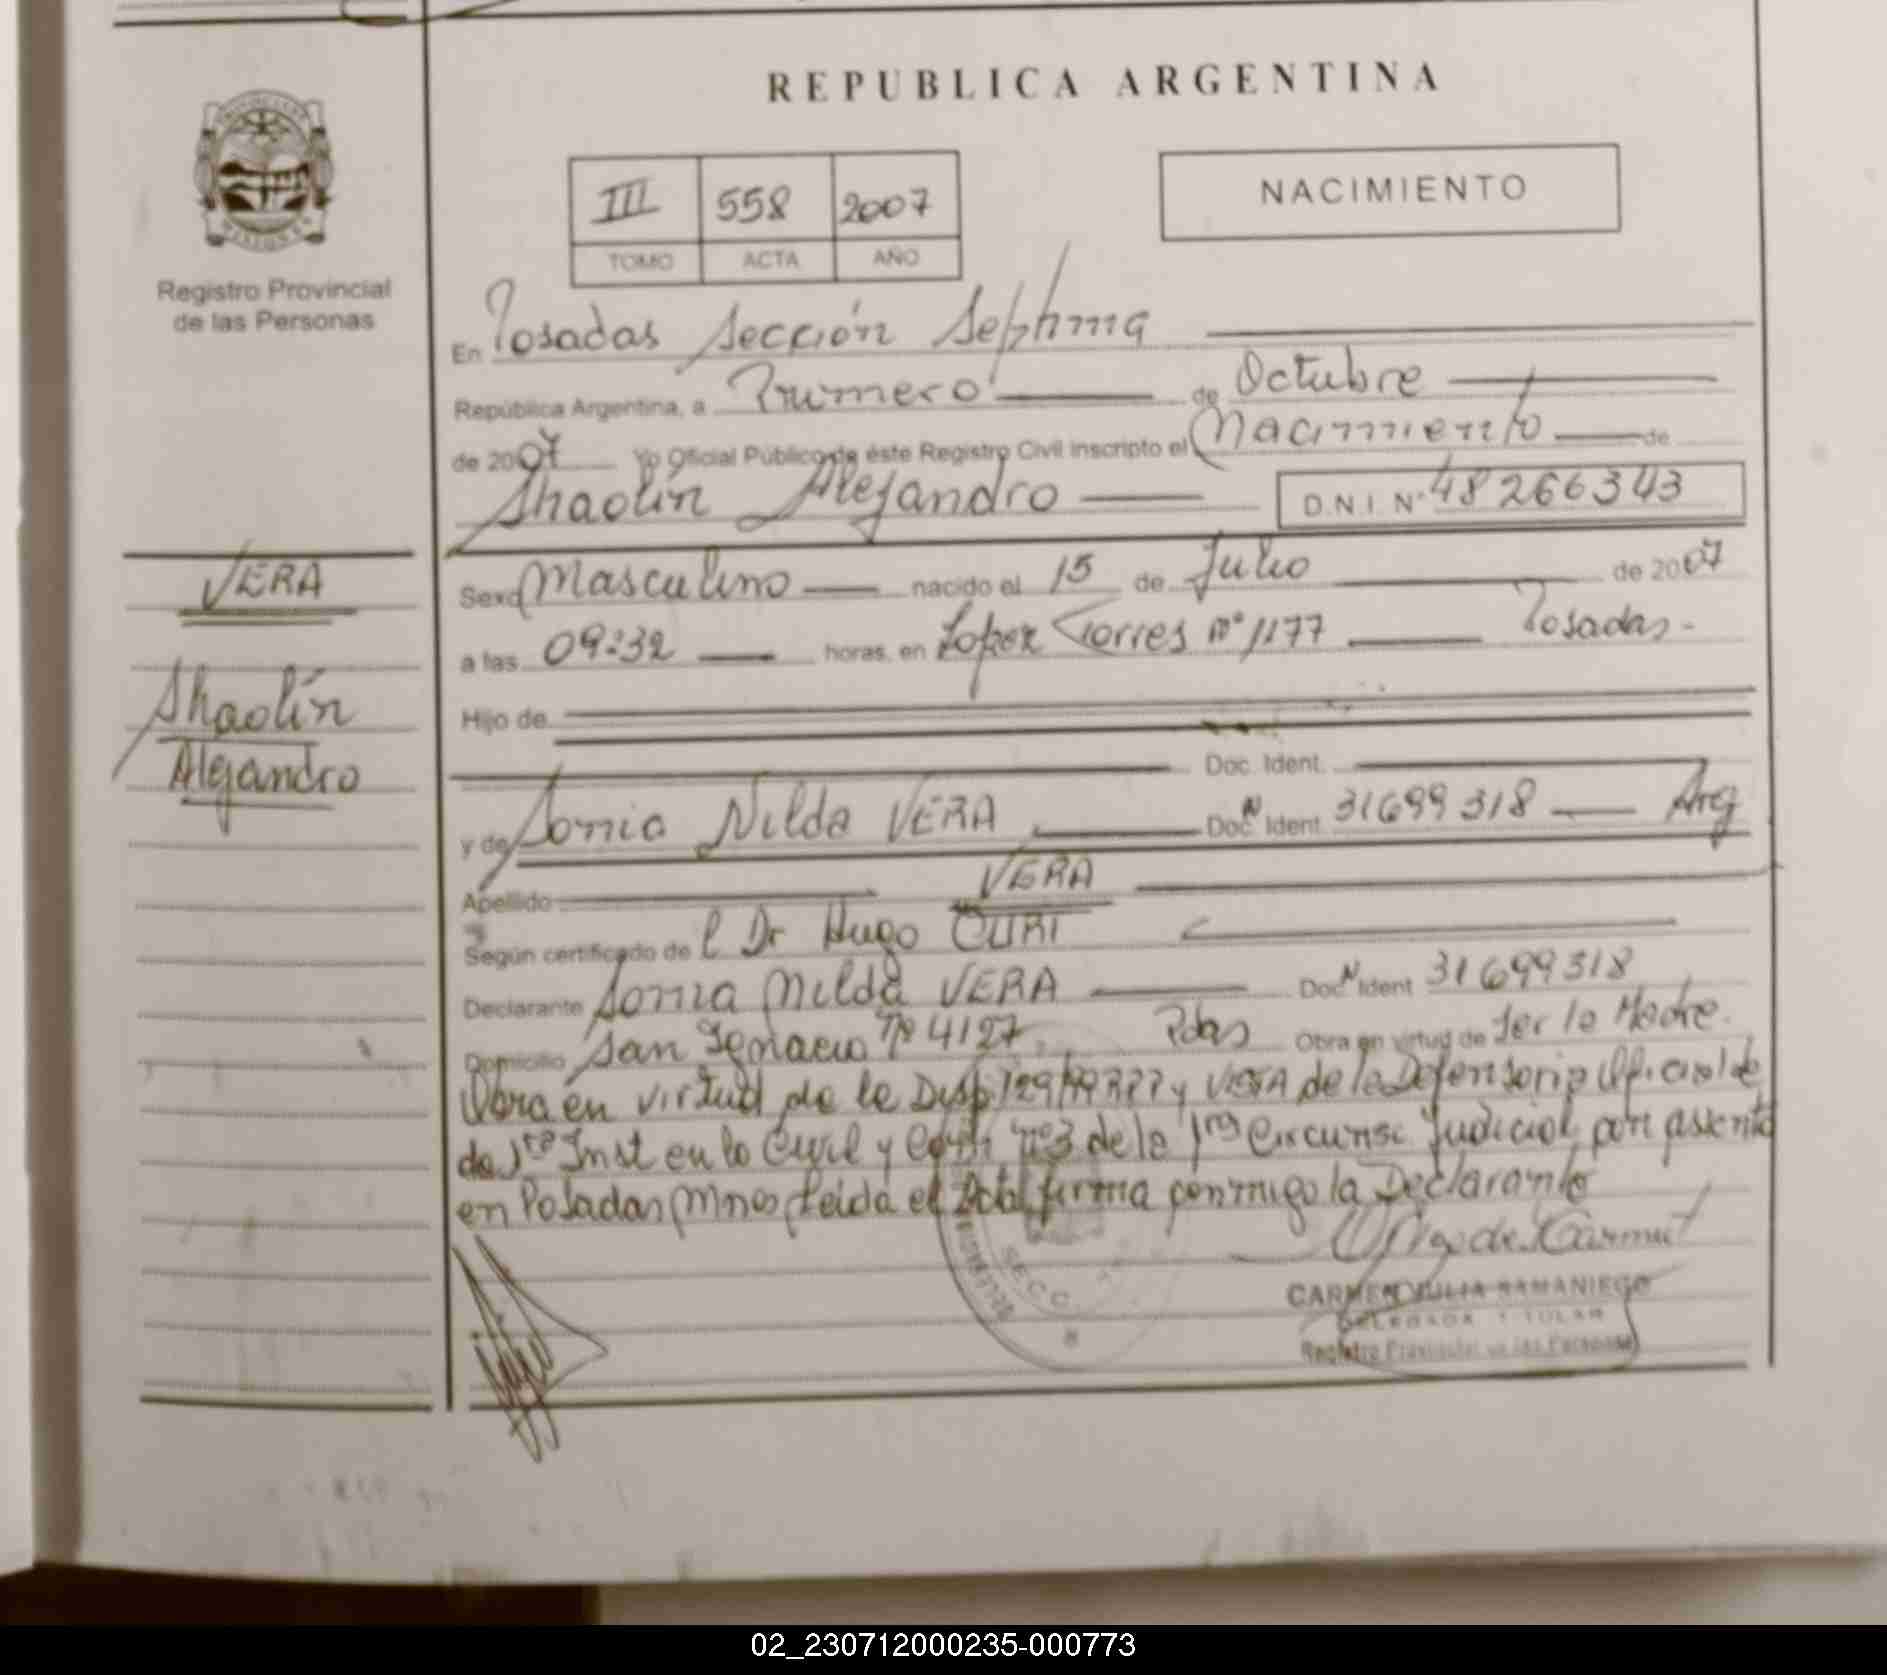 REPUBLICA ARGENTINA
III 558 2007
TOMO ACTA AÑO
NACIMIENTO
Registro Provincial
de las Personas
VERA
Shaolín
Alejandro
En Posadas Sección Septima
República Argentina, a Primero de Octubre
de 2007 Yo Oficial Público de éste Registro Civil inscripto el Nacimiento de
Shaolín Alejandro D.N.I. Nº 48266343
Sexo Masculino nacido el 15 de Julio de 2007
a las 09:32 horas, en Lopez Torres nº 1177 Posadas-
Hijo de
Doc. Ident.
y de Sonia Nilda VERA Doc N Ident 31699318 Arg
Apellido VERA
Según certificado de l Dr Hugo CURI
Declarante Sonia Nilda VERA Doc N Ident 31699318
Domicilio San Ignacio Nº 4127 Pdas Obra en virtud de ser la Madre.
Obra en virtud de la Disp 129/ y VISTA de la Defensoria Oficial de
de 1ra Inst en lo Civil y nº3 de la 1ra Circunsc Judicial con asiento
en Posadas Mnes Leida el Acta firma conmigo la Declarante
SECC
CARMEN JULIA SAMANIEGO
DELEGADA TITULAR
Registro Provincial de las Personas
02_230712000235-000773